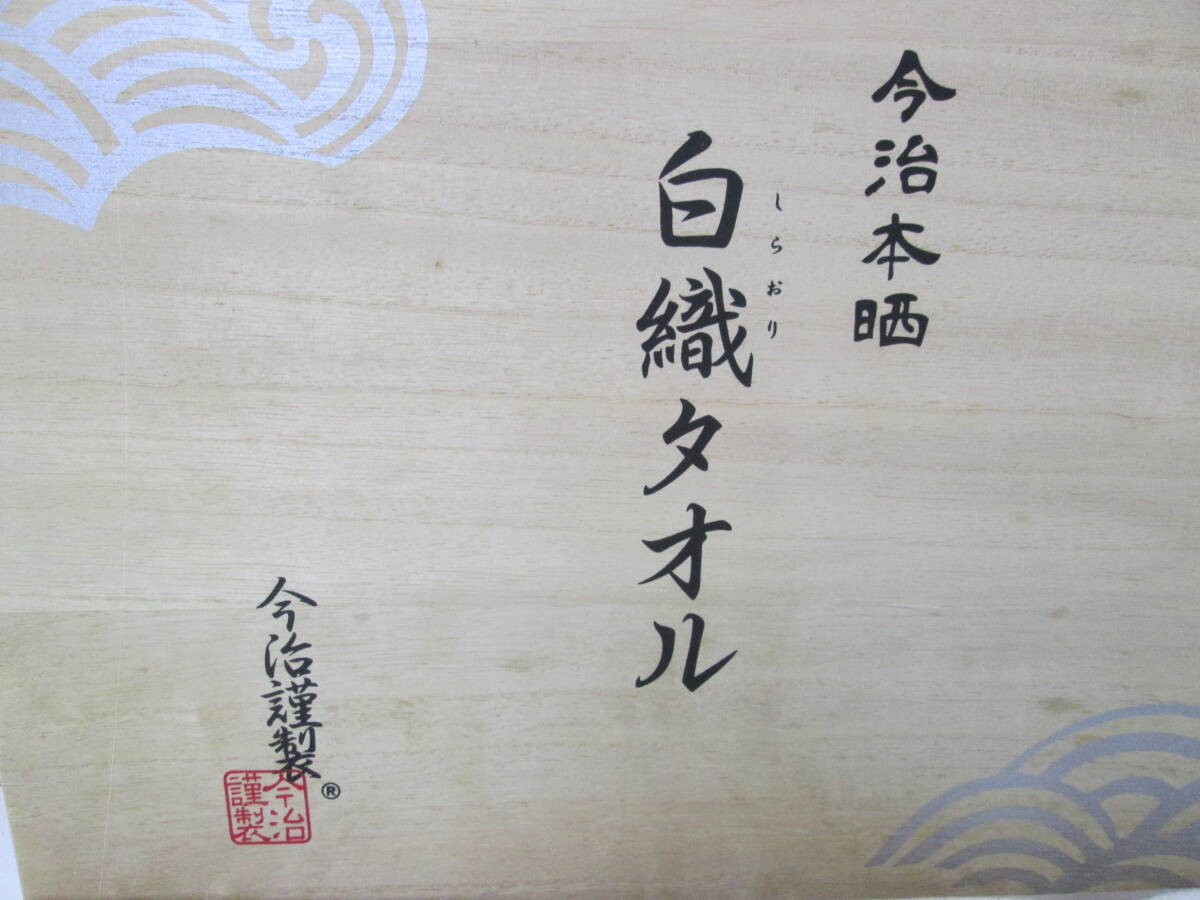 今治本晒
しらおり
白織タオル
今治謹製
®
今治
謹製